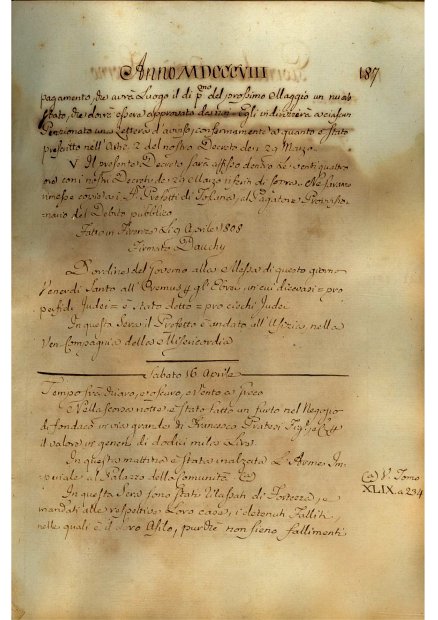 Anno MDCCCVIII
187
pagamento, che avrà Luogo il dì p.mo del prossimo Maggio un nuo
Stato, che dovrà essere approvato da noi. Egli indirizzerà a ciascun
Pensionato una Lettera d'avviso, conformemente a quanto è stato
prescritto nell'Art. 2 del nostro Decreto de' 29 Marzo.
V Il presente Decreto sarà affisso dentro le venti quattro
ore con i nostri Decreti de' 29 Marzo Ne saranno
rimesse copie ai Prefetti di Toscana, al Pagatore
del Debito pubblico
Fatto in Firenze li 9 Aprile 1808
Firmato Dauchy
D'ordine del Governo alla Messa di questo giorno
Venerdì Santo all'Oremus per gl'Ebrei in cui dicevasi = pro
perfidis Judeis = è stato detto = pro Judeis
In questa Sera il Prefetto è andato all'Ufizio nella
Ven. Compagnia della Misericordia
Sabato 16 Aprile
Tempo frà chiaro, e oscuro, e Vento a
Nella scorsa notte è stato fatto un furto nel Negozio
di fondaco in via grande di Francesco Pratesi
il valore in generi di dodici mila Lire.
In questa mattina è stata inalzata L'Arme Im
periale al Palazzo della Comunità (a)
(a) V. Tomo
XLIX. a 234
In questa Sera sono stati rilassati di Fortezza, e
mandati alle respettive Loro case, i detenuti Falliti,
nelle quali è il loro Asilo, purchè non sieno fallimenti